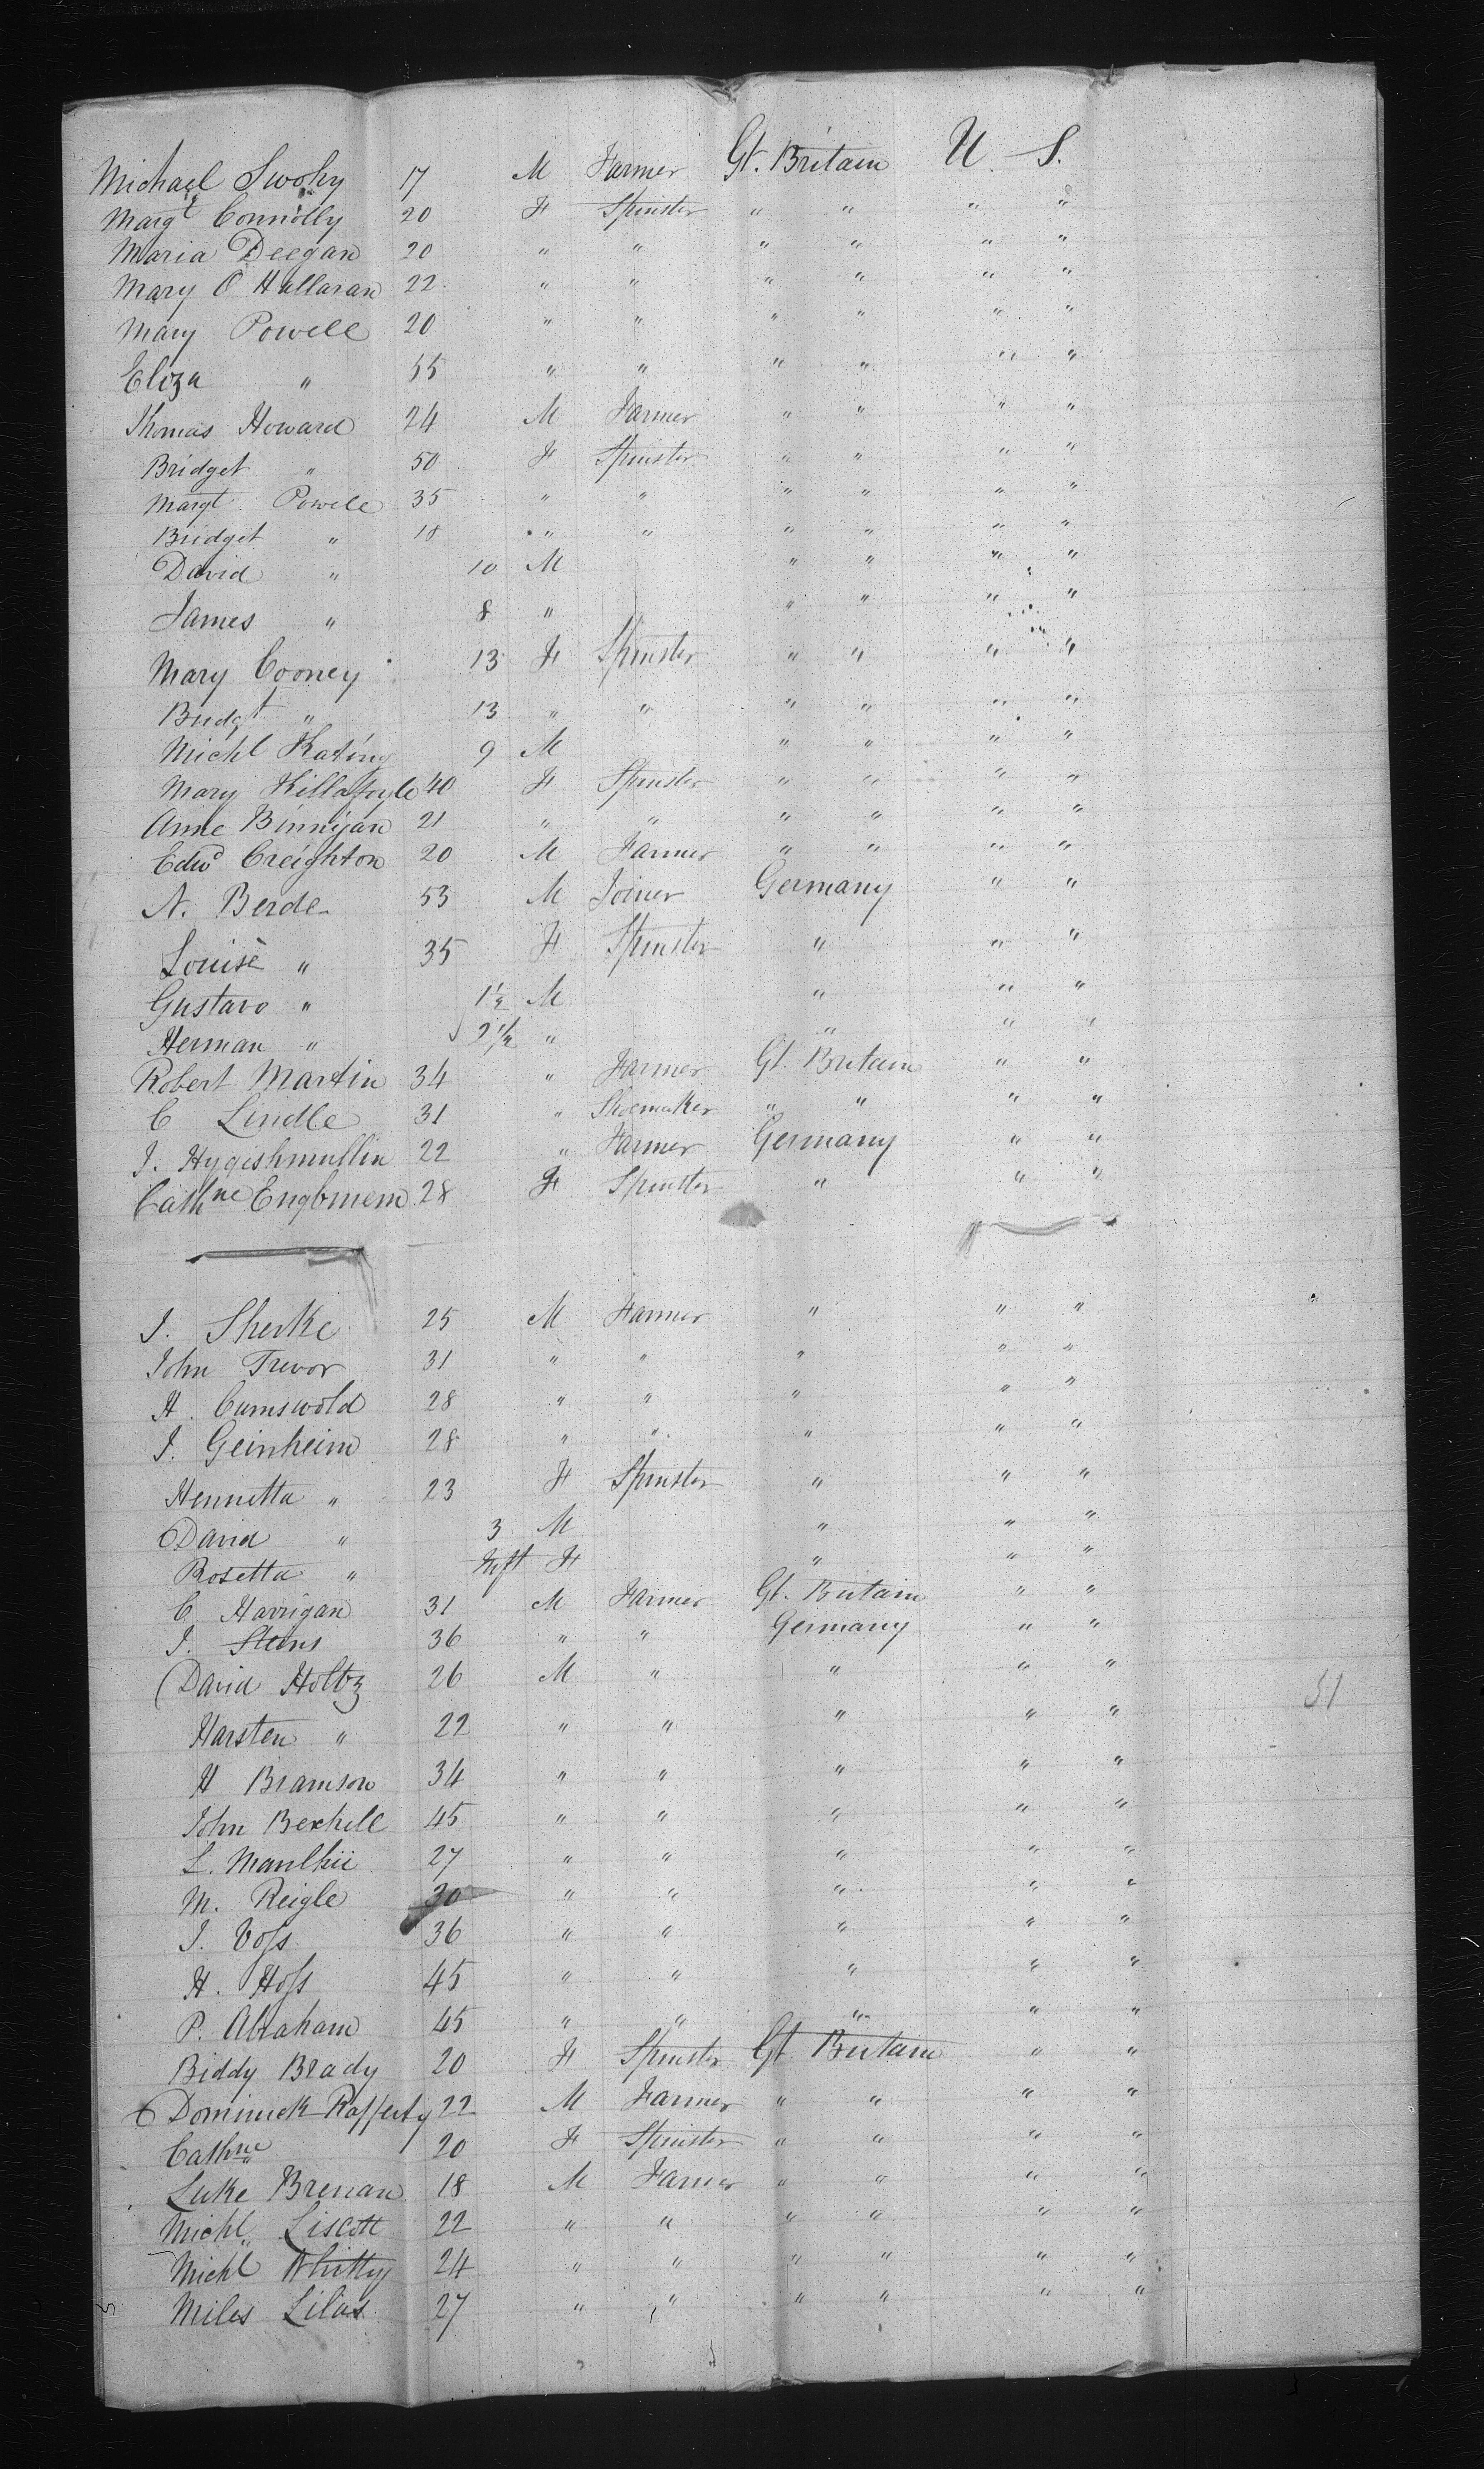 Michael Swohy 17 M Farmer Gt. Britain U S.
Margt Connolly 20 F Spinster " " " "
Maria Deegan 20 " " " " " "
Mary O Hallaran 22 " " " " " "
Mary Powell 20 " " " " " "
Eliza " 55 " " " " " "
Thomas Howard 24 M Farmer " " " "
Bridget " 50 F Spinster " " " "
Margt Powell 35 " " " " " "
Bridget " 18 " " " " " "
David " 10 M " " " "
James " 8 " " " " "
Mary Cooney 13 F Spinster " " " "
Bridgt " 13 " " " " " "
Michl Kating 9 M " " " "
Mary Killafoyle 40 F Spinster " " " "
Anne Binnijan 21 " " " " " "
Edwd Creighton 20 M Farmer " " " "
N. Berde 53 M Joiner Germany " "
Louise " 35 F Spinster " " "
Gustavo " 1½ M " " "
Herman " 2½ " " " "
Robert Martin 34 " Farmer Gt. Britain " "
C Lindle 31 " Shoemaker " " " "
J. Hygishmullin 22 " Farmer Germany " "
Cathne Englomem 28 F Spinster " " "
J. Sherke 25 M Farmer " " "
John Trevor 31 " " " " "
H. Cumswold 28 " " " " "
J. Geinheim 28 " " " " "
Hennetta " 23 F Spinster " " "
David " 3 M " " "
Rosetta " Inft F " " "
C Harrigan 31 M Farmer Gt. Britain " "
J. Stens 36 " " Germany " "
David Holtz 26 M " " " "
Harsten " 22 " " " " "
H Bramson 34 " " " " "
John Bexhell 45 " " " " "
L. Manlhii 27 " " " " "
M. Reigle 30 " " " " "
J. Voss 36 " " " " "
H. Hoss 45 " " " " "
P. Abraham 45 " " " " "
Biddy Brady 20 F Spinster Gt Britain " "
Dominick Rafferty 22 M Farmer " " " "
Cathne " 20 F Spinster " " " "
Luke Brenan 18 M Farmer " " " "
Michl Liscott 22 " " " " " "
Michl Whitty 24 " " " " " "
Miles Lilas 27 " " " " " "
51